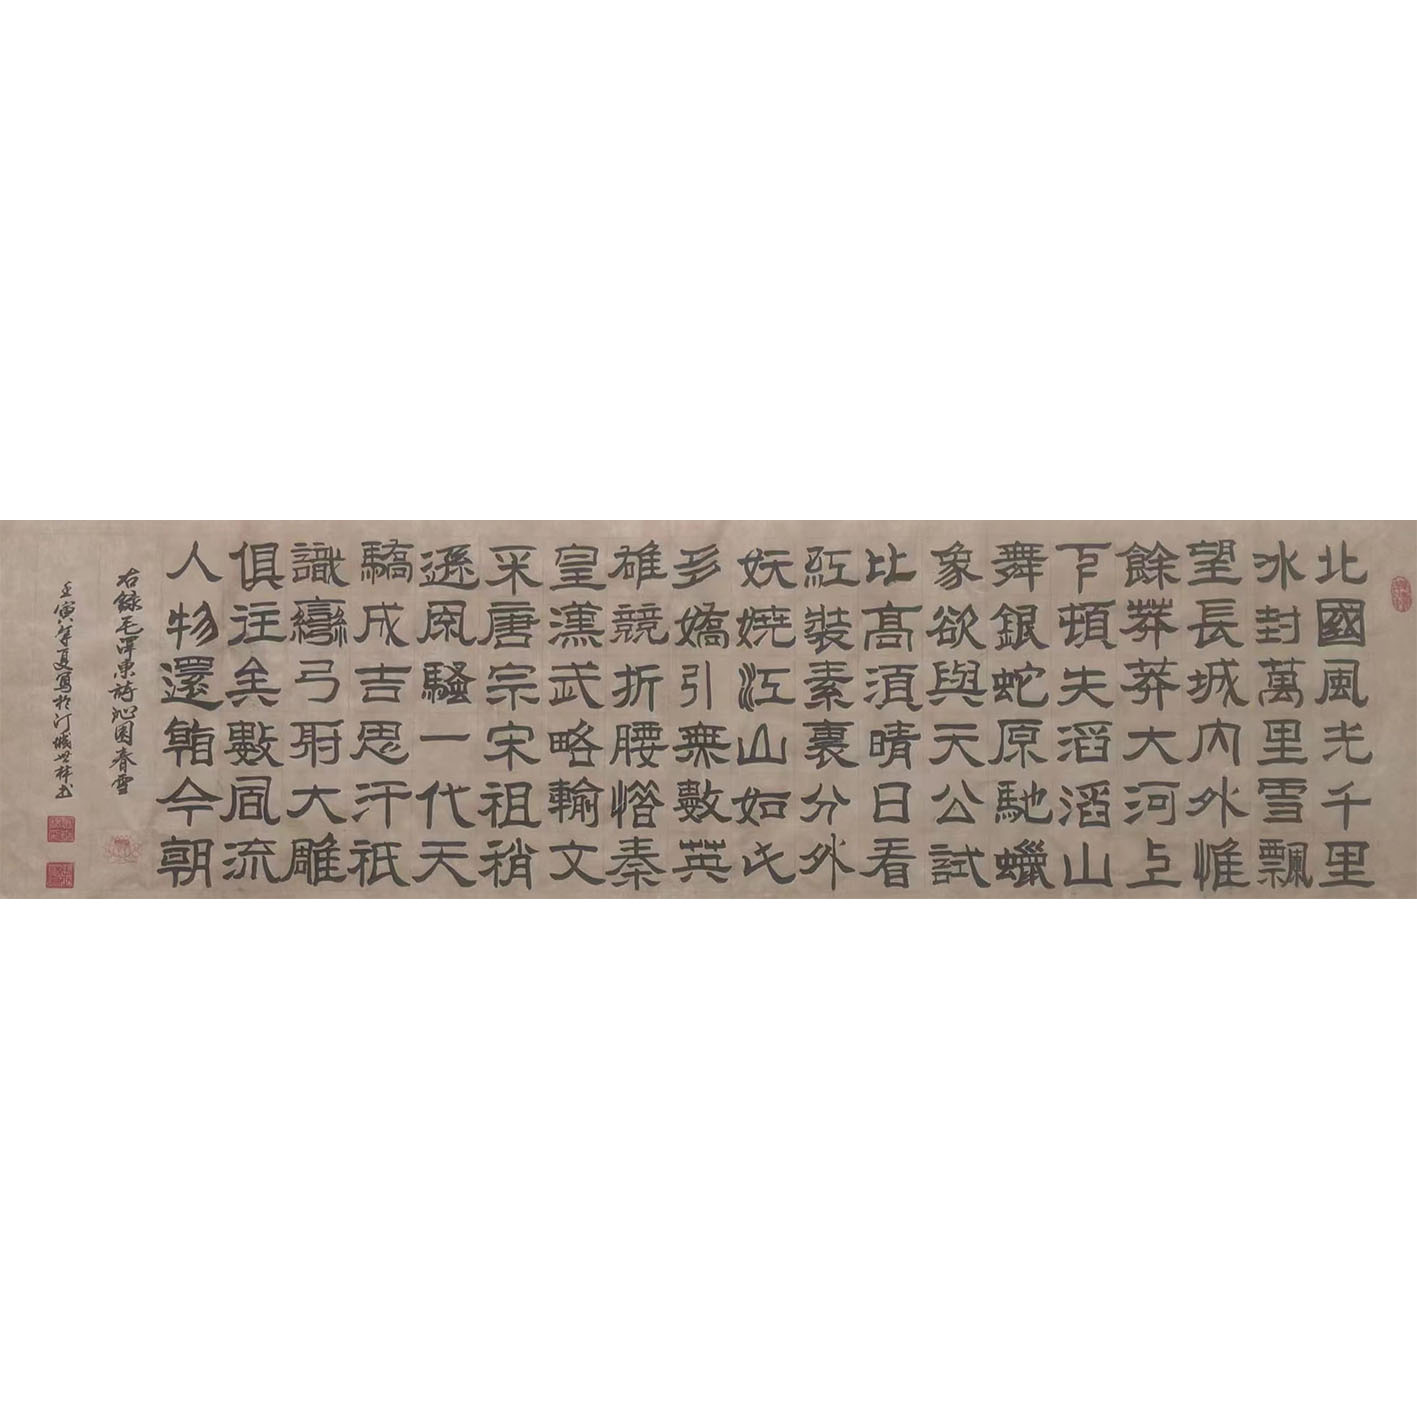 北國風光千里
冰封萬里雪飄
望長城內外惟
餘莽莽大河上
下頓失滔滔山
舞銀蛇原馳蠟
象欲與天公試
比高須晴日看
紅裝素裹分外
妖嬈江山如此
多嬌引無數英
雄競折腰惜秦
皇漢武略輸文
采唐宗宋祖稍
遜風騷一代天
驕成吉思汗祇
識彎弓射大雕
俱往矣數風流
人物還看今朝
右錄毛澤東詩沁園春雪
壬寅年夏寫於汀城世林書